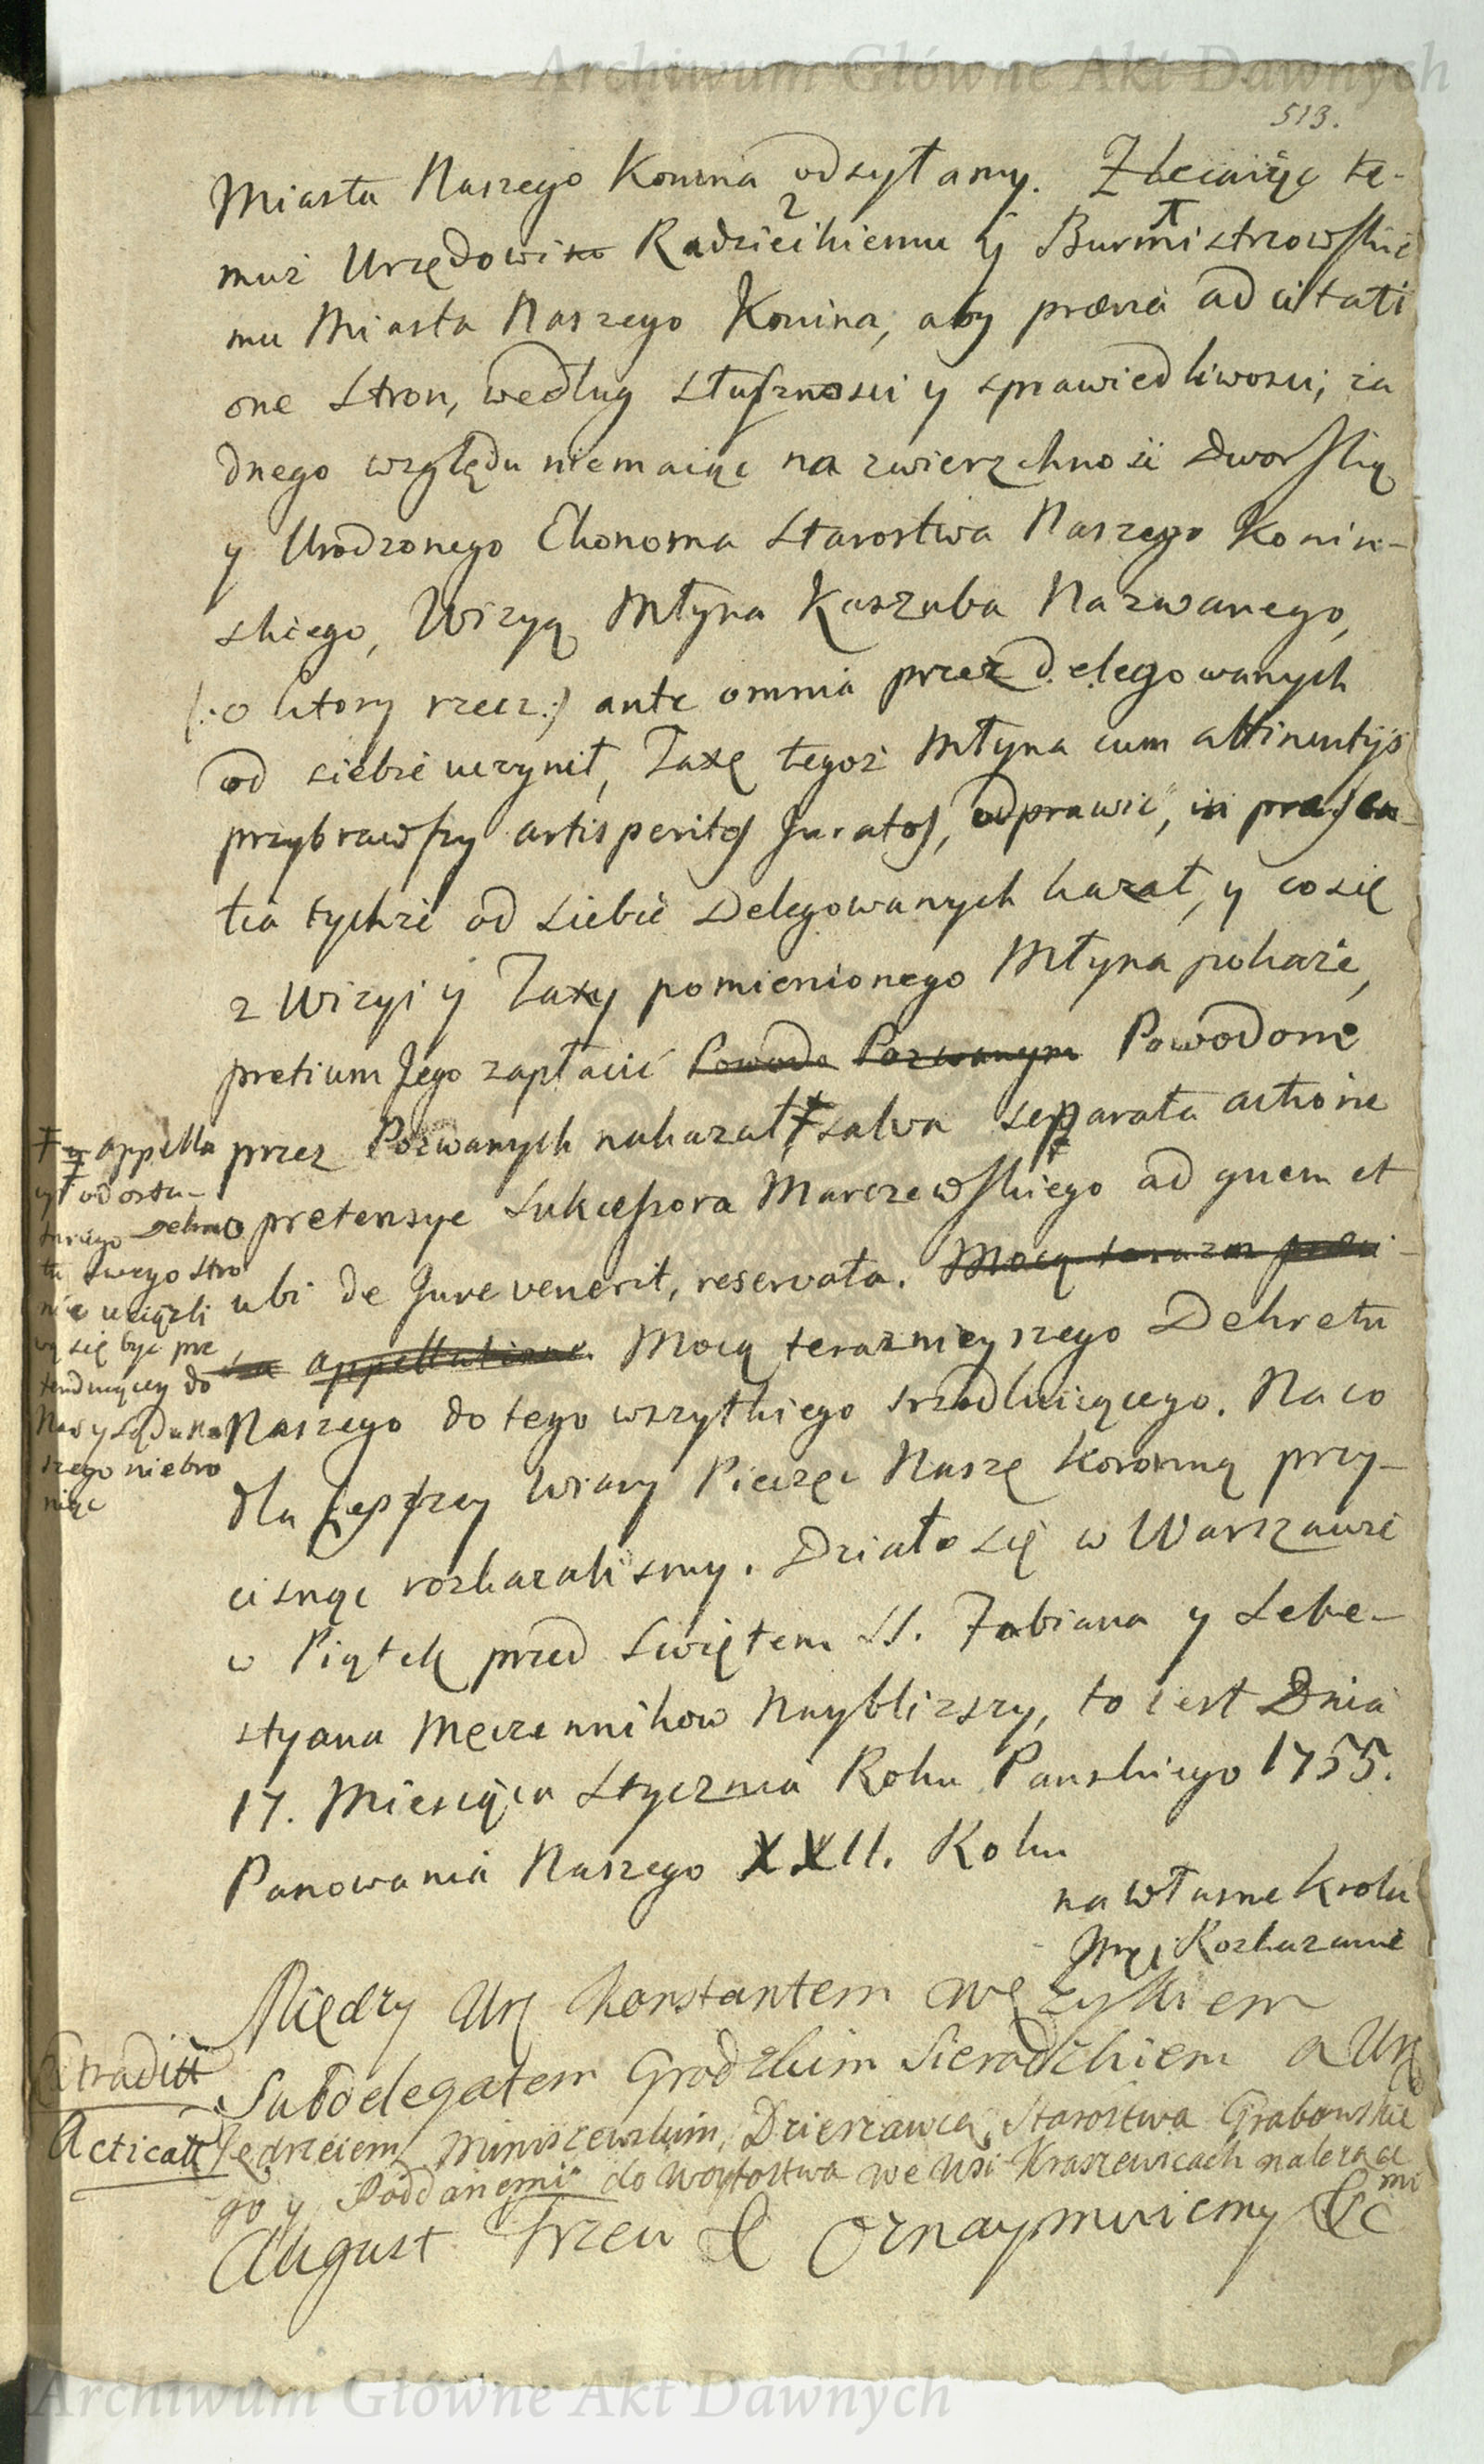 Archiwum Główne Akt Dawnych
513.
Miasta Naszego Konina odsyłamy. Zlecaiąc te-
muż Urzędowi Radzieckiemu y Burmistrzowskie
mu Miasta Naszego Konina, aby prævia adcitati
one Stron, według słuszności y sprawiedliwości, ża
dnego względu niemaiąc na zwierzchność Dworską
y Urodzonego Ekonoma Starostwa Naszego Konin-
skiego, Wizyą Młyna Kaszuba Nazwanego,
(:o ktory rzecz:) ante omnia przez delegowanych
od siebie uczynił, Taxę tegoż Młyna cum attinentijs
przybrawszy artis peritos Juratos, odprawić, in præsen
tia tychże od siebie Delegowanych kazał, y co się
z Wizyi y Taxy pomienionego Młyna pokaże,
pretium Jego zapłacić Powoda Pozwanym Powodowi
przez Pozwanych nakazał, salva separata actione
pretensye Sukcessora Marczewskiego ad quem et
ubi de Jure venerit, reservata. Mocą
appellatione Mocą teraznieyszego Dekretu
Naszego do tego wszytkiego srzodkuiącego. Na co
dla lepszey wiary Pieczęć Naszę Koronną przy-
cisnąć rozkazalismy. Działo się w Warszawie
w Piątek przed Swiętem SS. Fabiana y Seba-
styana Męczennikow Naybliższy, to iest Dnia
17. Miesiąca Stycznia Roku Panskiego 1755.
Panowania Naszego XXII. Roku
na własne Krola
Jmci Rozkazanie
appella
cyi od osta-
tniego Dekre
tu swego stro
nie uciążli
wą się być pre
tenduiącey do
Nas y Sądu Na
szego niebro
niąc
Między Ur Konstantem Wężykiem
Subdelegatem Grodzkim Sieradzkiem a Ur
Jędrzeiem Miniszewskim, Dzierżawcą Starostwa Grabowskie
go y Poddanemi do Woytostwa we Wsi Kraszewicach należące
mi
August Trzeci &c Oznaymuiemy &c
Extradit
Acticat
Archiwum Główne Akt Dawnych